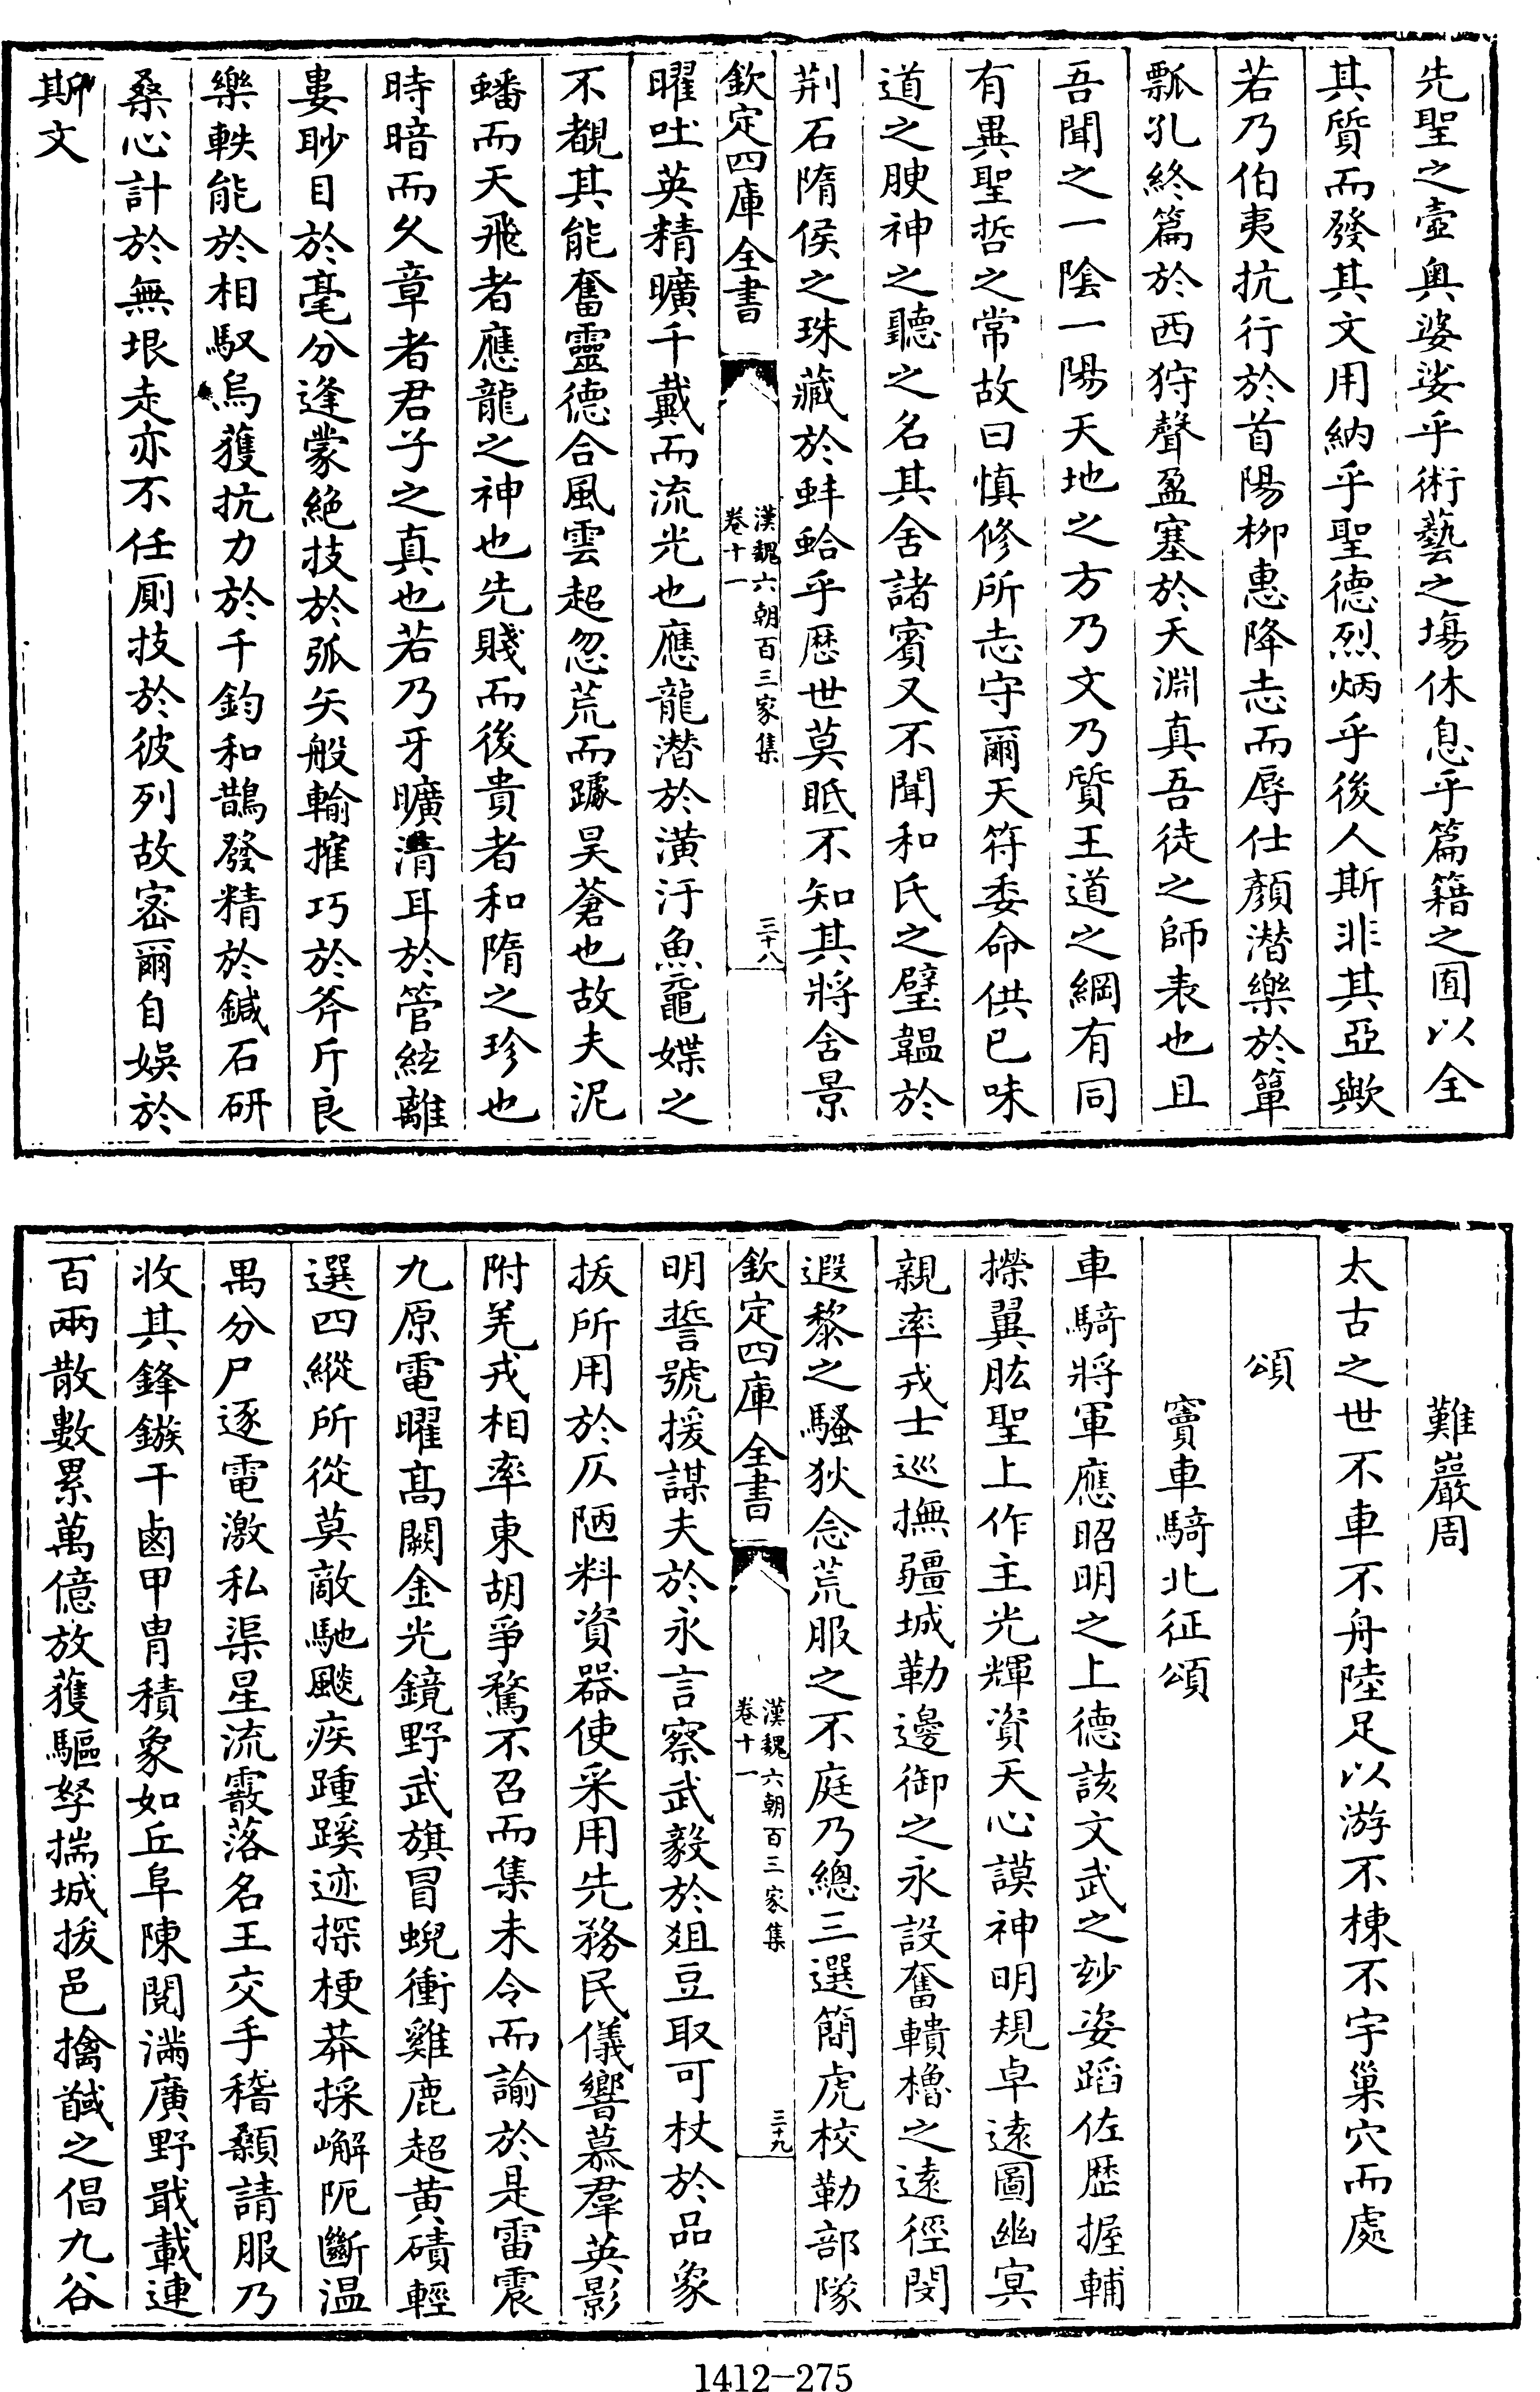 先聖之壼奥婆娑乎術藝之場休息乎篇籍之囿以全
其質而發其文用納乎聖德烈炳乎後人斯非其亞歟
若乃伯夷抗行於首陽柳惠降志而辱仕顔潜樂於簞
瓢孔終篇於西狩聲盈塞於天淵真吾徒之師表也且
吾聞之一陰一陽天地之方乃文乃質王道之綱有同
有異聖哲之常故曰慎修所志守爾天符委命供已味
道之腴神之聽之名其舍諸賓又不聞和氏之璧韞於
荆石隋侯之珠藏於蚌蛤乎歴世莫眂不知其將含景
欽定四庫全書
漢魏六朝百三家集
卷十一
三十八
曜吐英精曠千戴而流光也應龍潜於潢汙魚黿媟之
不覩其能奮靈德合風雲超忽荒而躆昊蒼也故夫泥
蟠而天飛者應龍之神也先賤而後貴者和隋之珍也
時暗而久章者君子之真也若乃牙曠清耳於管絃離
婁眇目於毫分逢蒙絶技於弧矢般輸搉巧於斧斤良
樂軼能於相馭烏獲抗力於千鈞和鵲發精於鍼石研
桑心計於無垠走亦不任厠技於彼列故宻爾自娱於
斯文
難嚴周
太古之世不車不舟陸足以游不棟不宇巢穴而處
頌
竇車騎北征頌
車騎將軍應昭明之上德該文武之妙姿蹈佐歴握輔
㩇翼肱聖上作主光輝資天心謨神明規卓遠圖幽冥
親率戎士巡撫疆城勒邊御之永設奮轒櫓之遠徑閔
遐黎之騷狄念荒服之不庭乃總三選簡虎校勒部隊
欽定四庫全書
漢魏六朝百三家集
卷十一
三十九
明誓號援謀夫於永言察武毅於爼豆取可杖於品象
拔所用於仄陋料資器使采用先務民儀響慕羣英影
附羌戎相率東胡爭騖不召而集未令而諭於是雷震
九原電曜髙闕金光鏡野武旗冒蜺衝雞鹿超黄磧輕
選四縱所從莫敵馳飈疾踵蹊迹探梗莽採嶰阨斷温
禺分尸逐電激私渠星流霰落名王交手稽顙請服乃
收其鋒鏃干鹵甲胄積象如丘阜陳閱滿廣野戢載連
百兩散數累萬億放獲驅孥揣城拔邑擒馘之倡九谷
1412-275